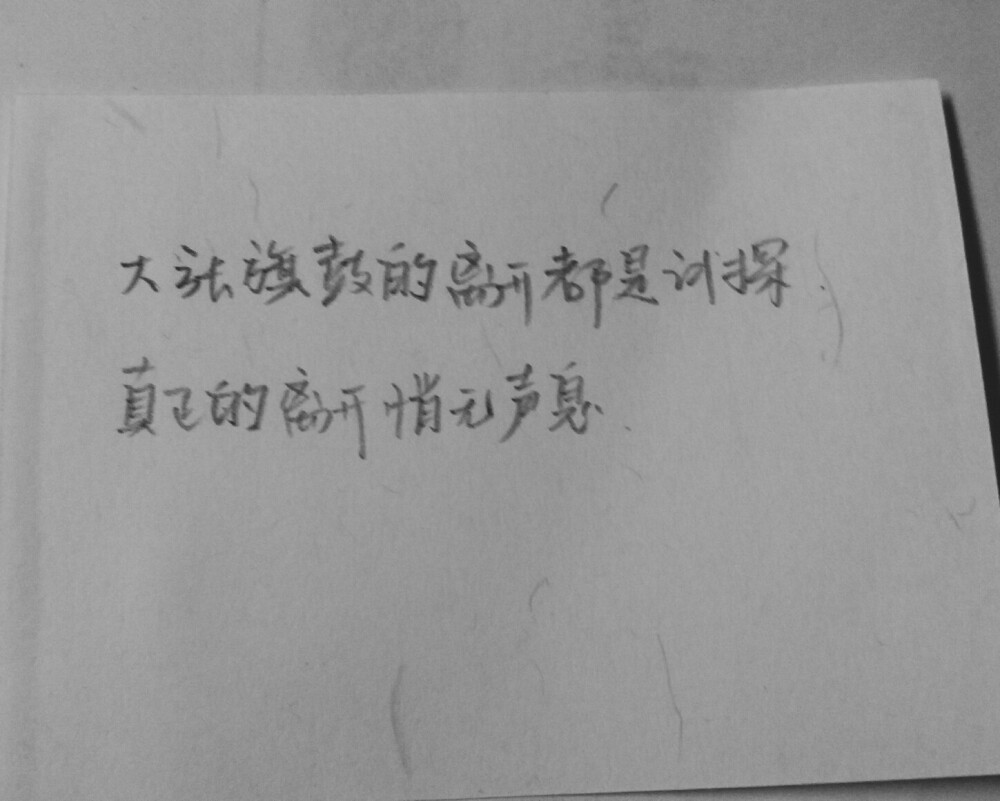 大张旗鼓的离开都是试探.
真正的离开悄无声息.